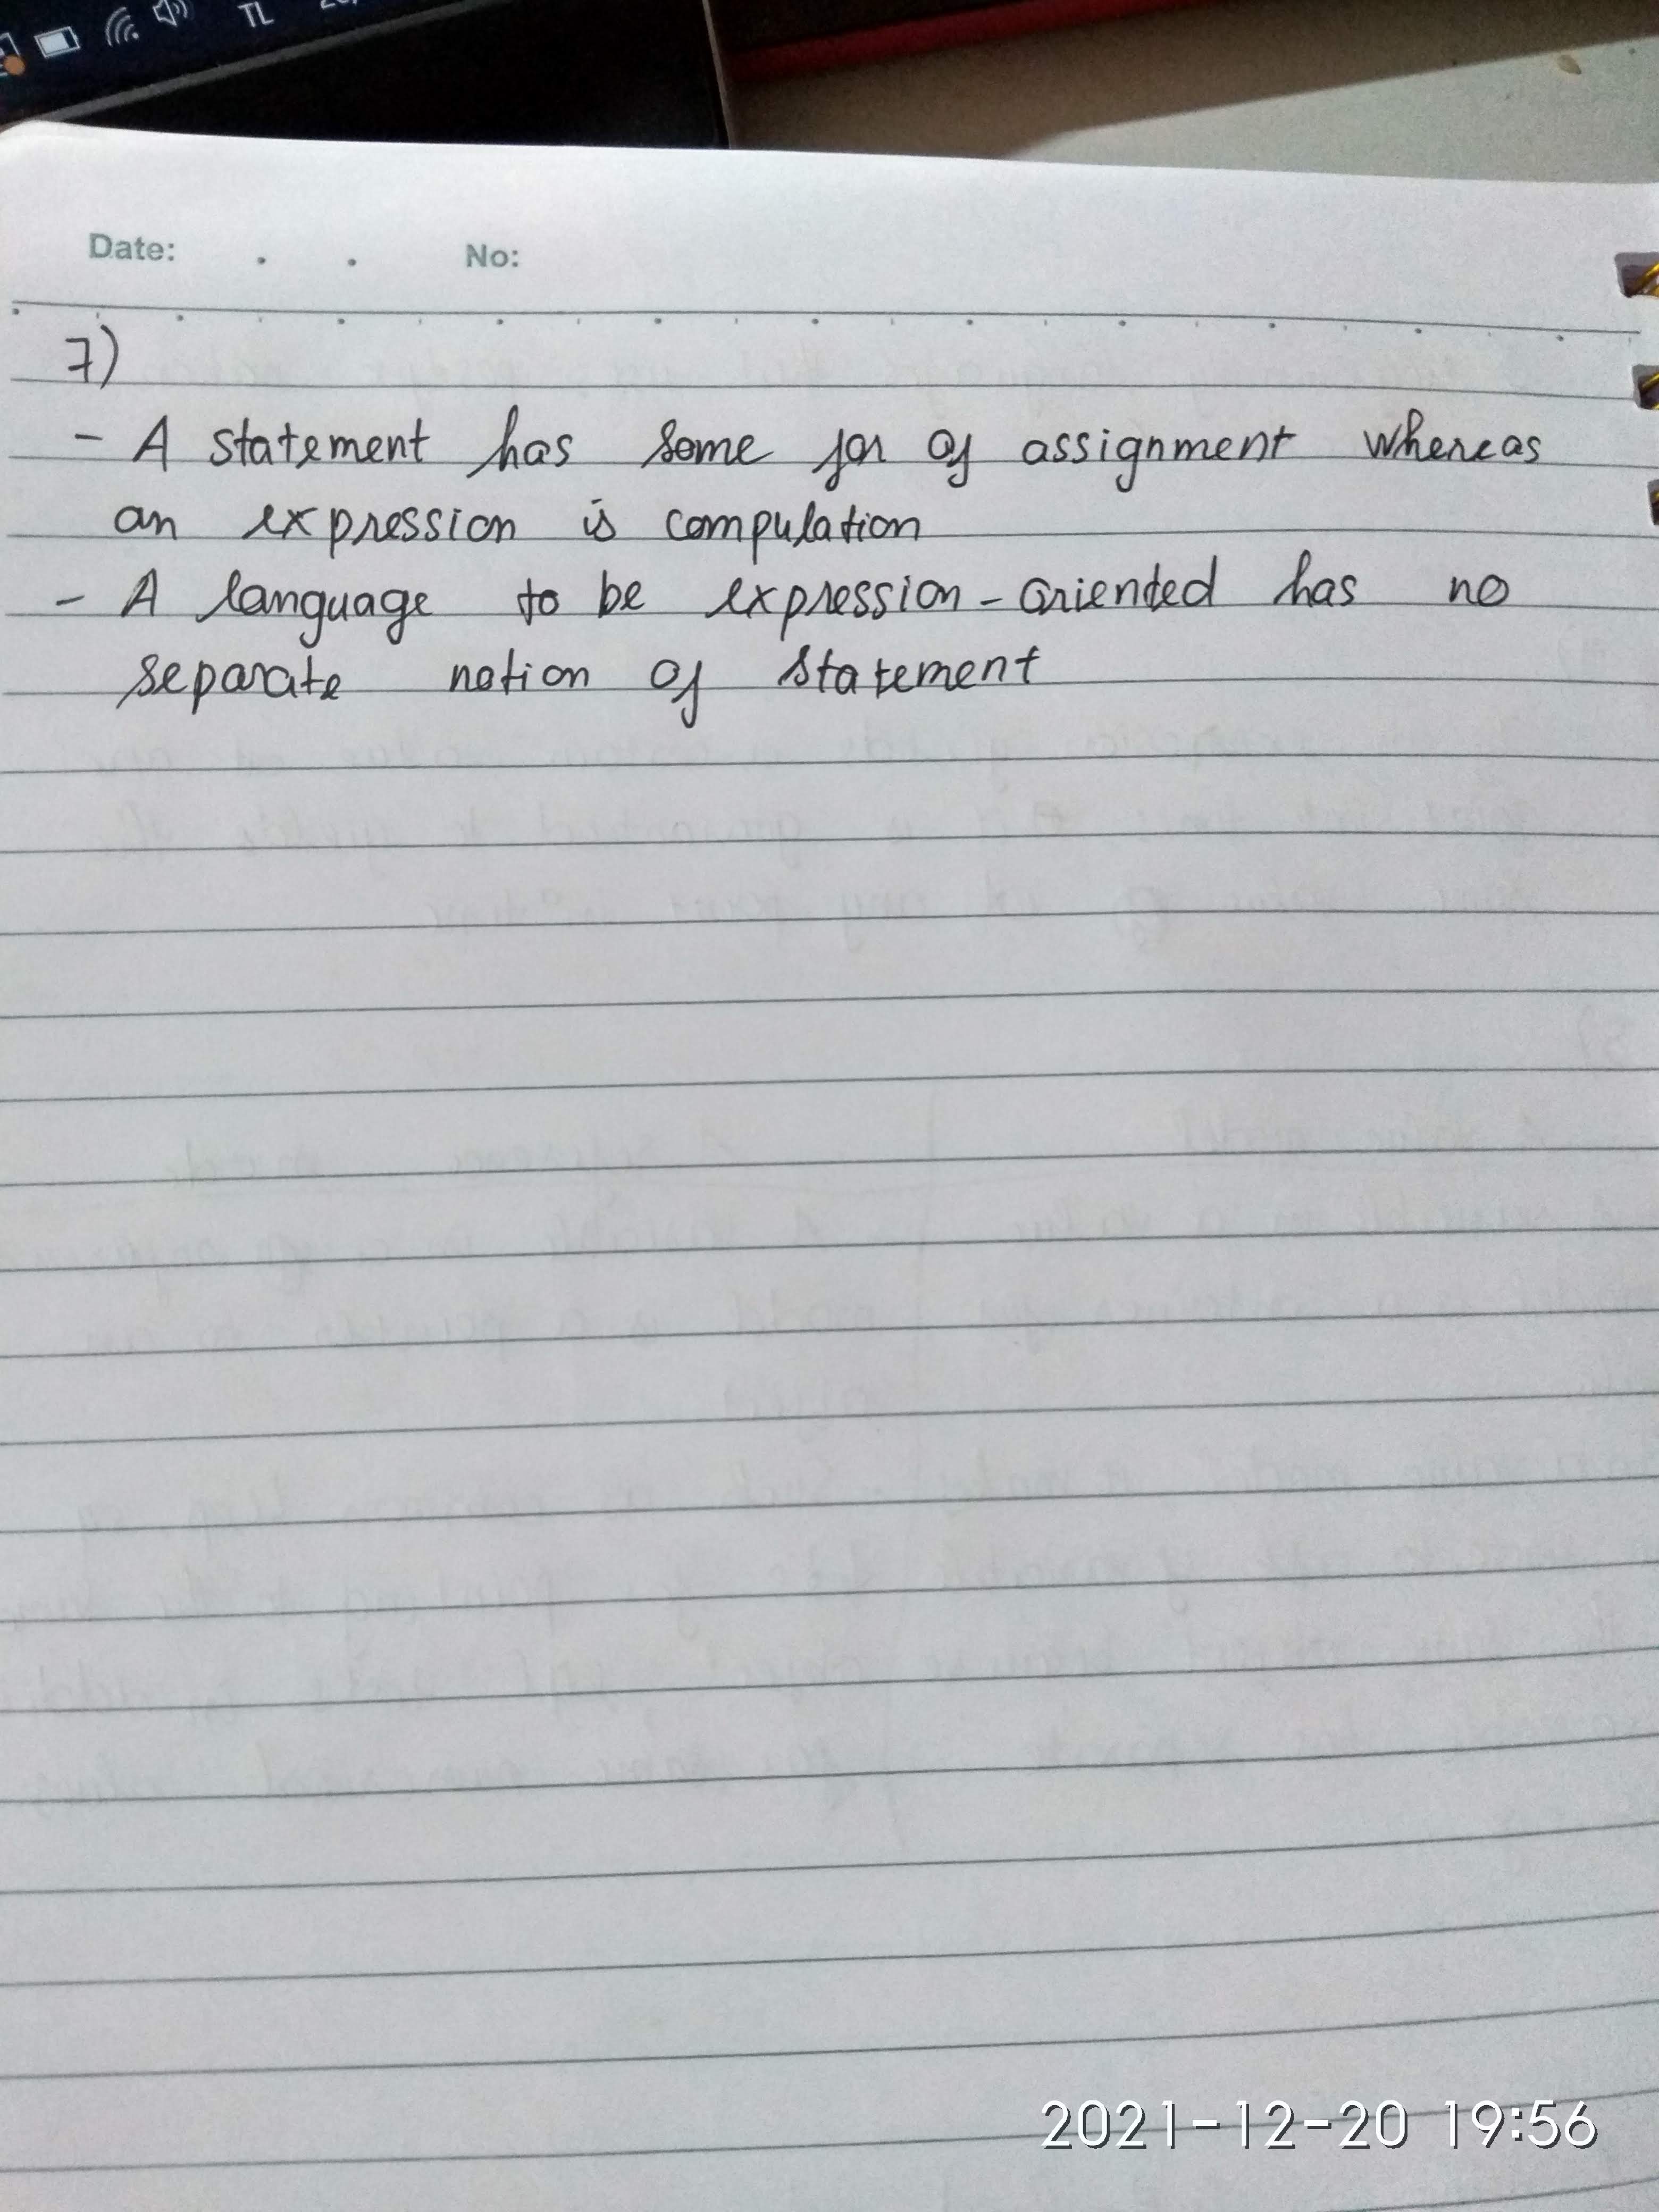 TL
Date: . . No:
7)
- A statement has some for of assignment whereas
an expression is compulation
- A language to be expression-oriented has no
separate notion of statement
2021-12-20 19:56